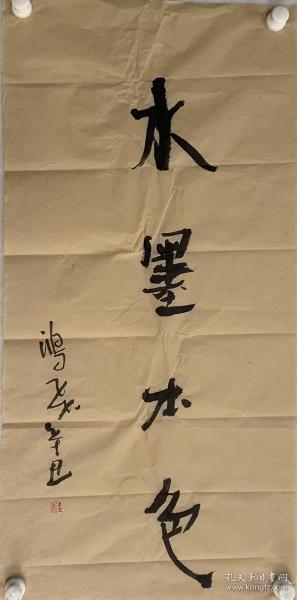 水墨本色
鸿 辛丑
孔夫子旧书网
www.kongfz.com